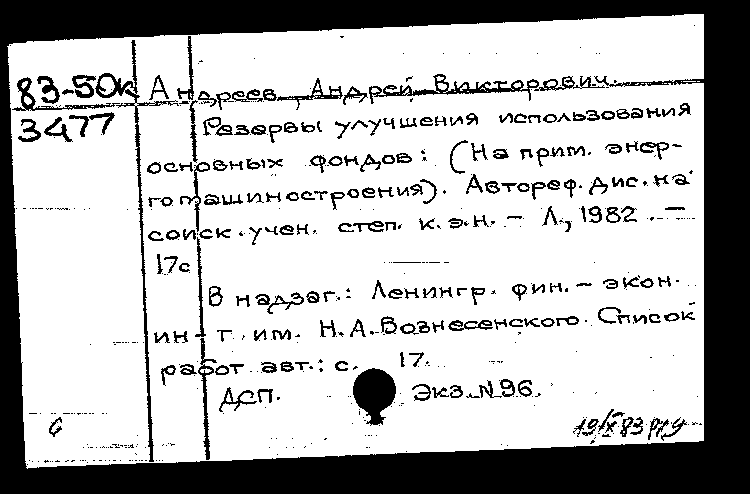 83-50к Андреев, Андрей Викторович.
3477 Резервы улучшения использования
основных фондов: (На прим. энер-
гомашиностроения). Автореф. дис. на
соиск. учен. степ. к.э.н. - Л., 1982. -
17с
В надзаг.: Ленингр. фин. - экон.
ин-т им. Н.А. Вознесенского. Список
работ авт.: с. 17.
ДСП. Экз. N 96.
6 19/X 83